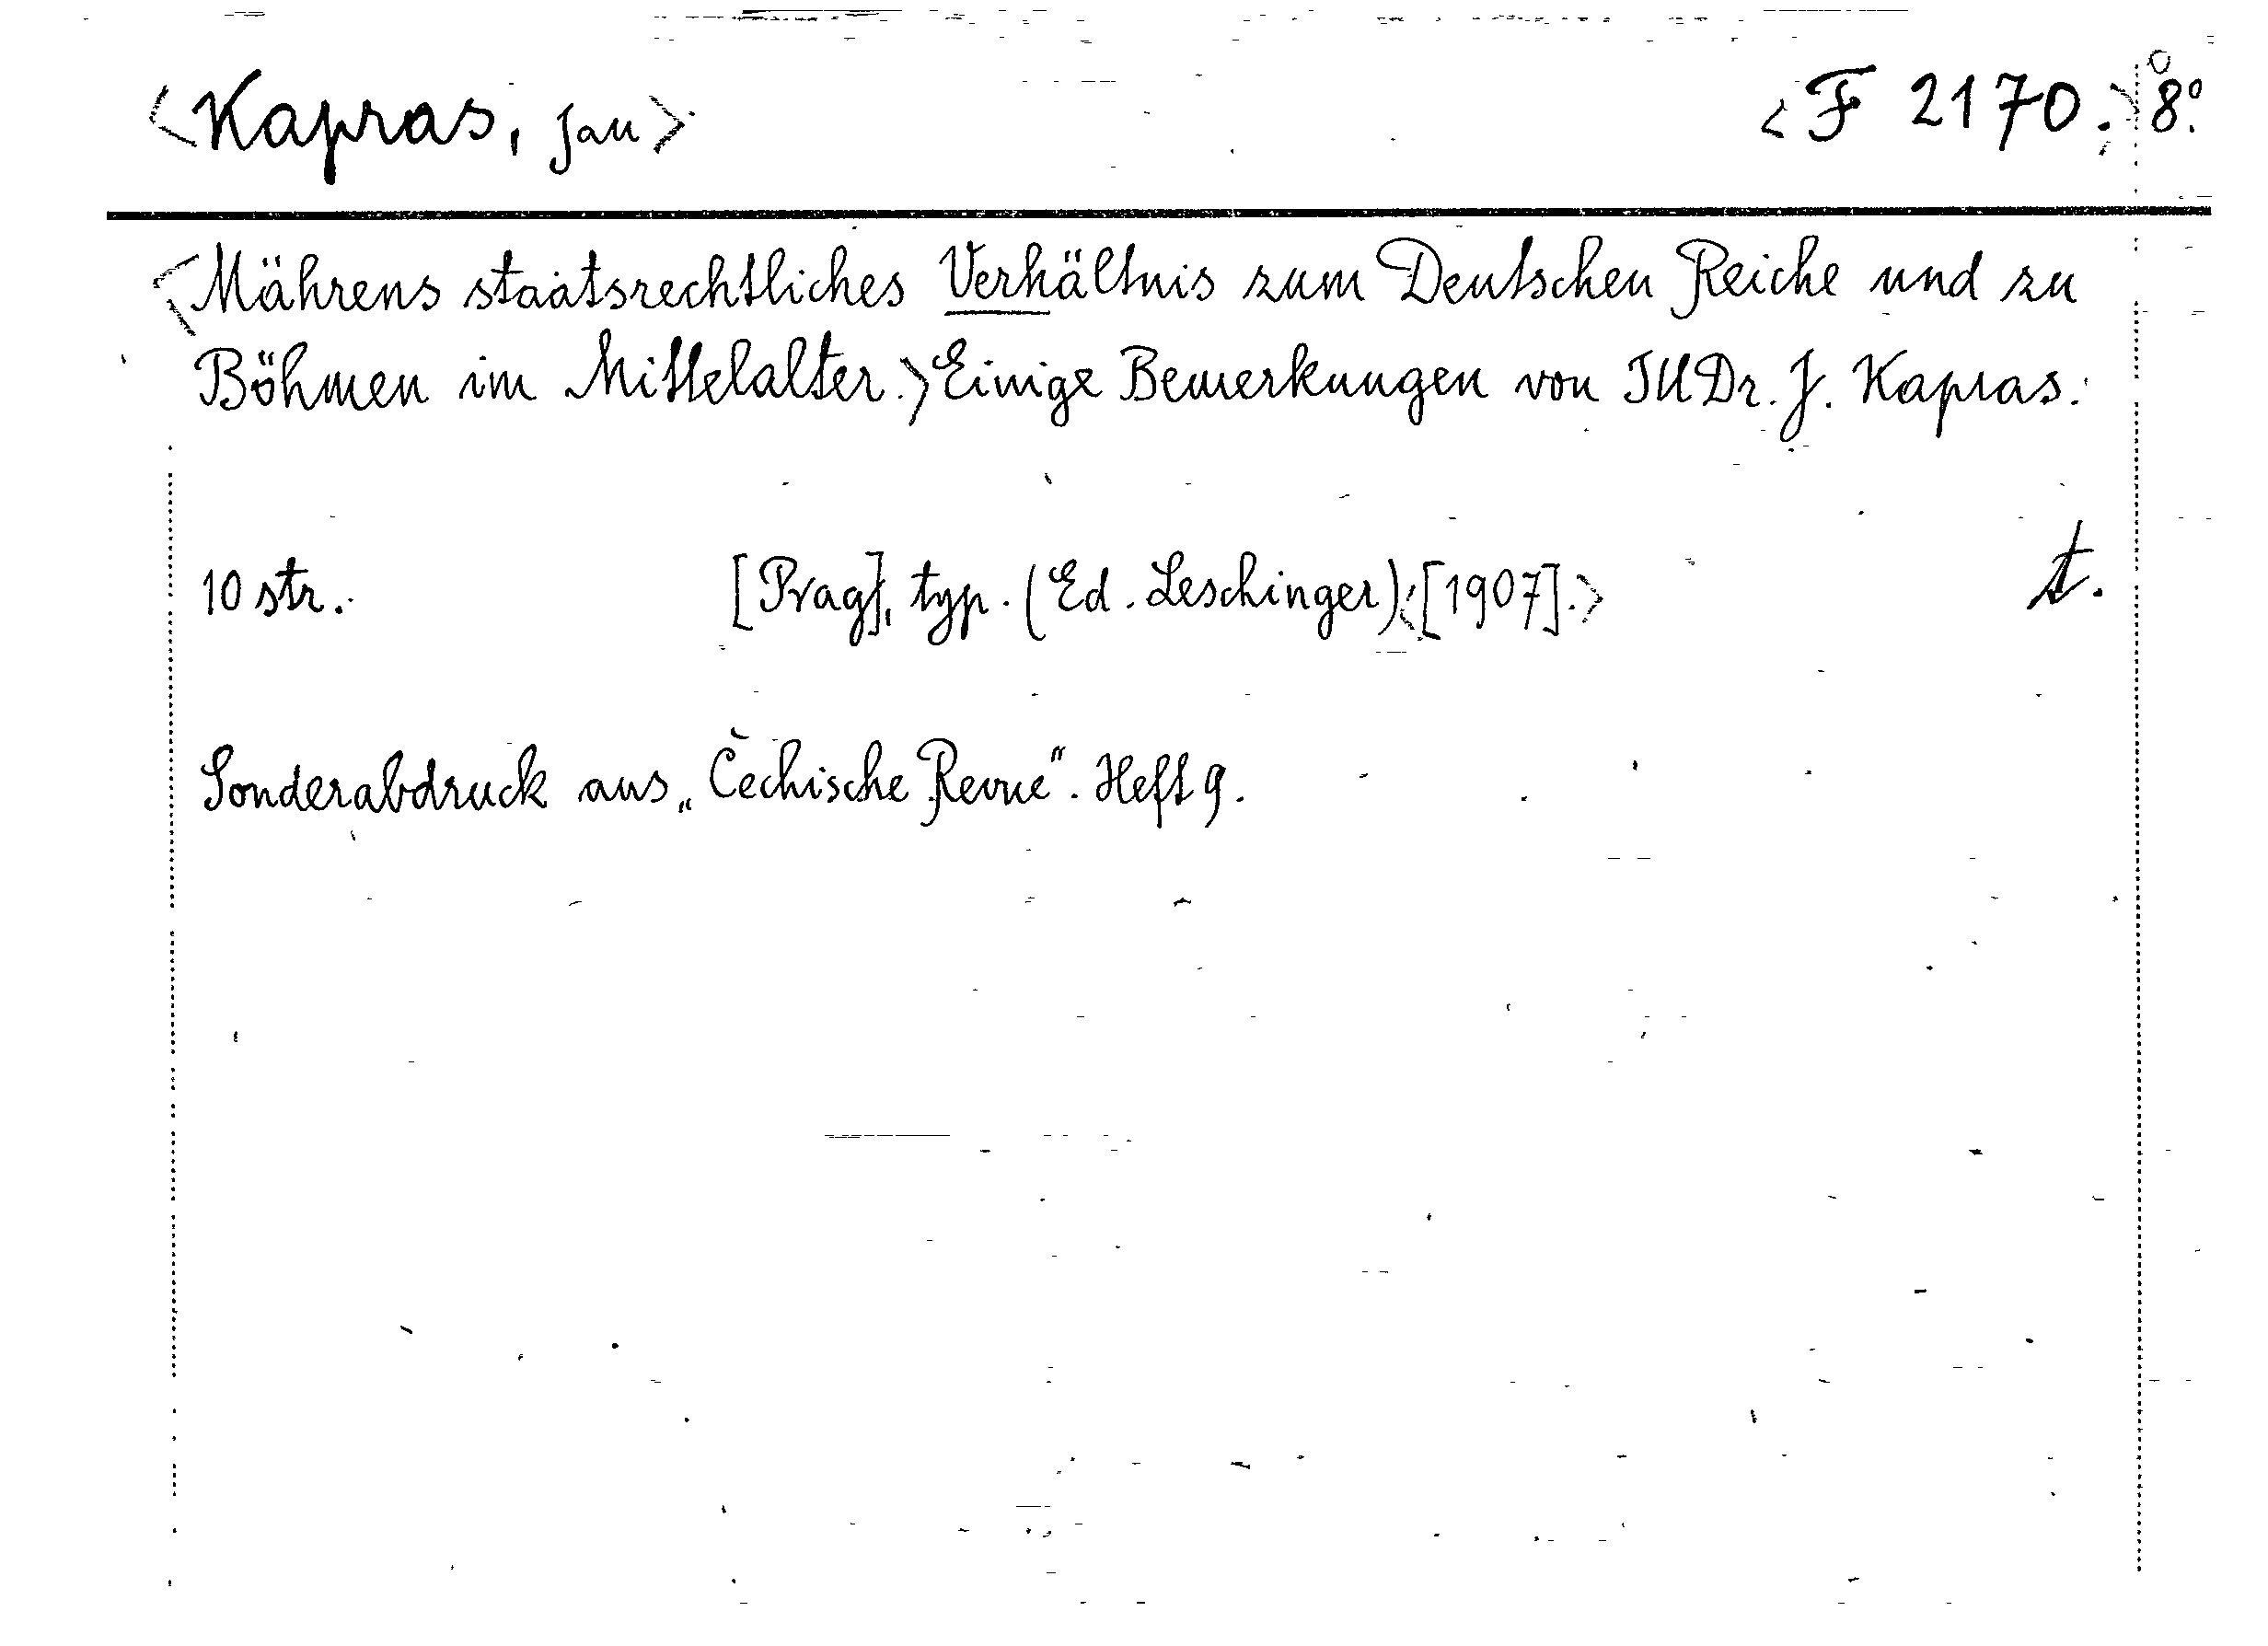 <Kapras, Jan> <F 2170.> 8°.
<Mährens staatsrechtliches Verhältnis zum Deutschen Reiche und zu
Böhmen im Mittelalter.> Einige Bemerkungen von JUDr. J. Kapras.
10 str. [Prag], typ. (Ed. Leschinger) <[1907].> t.
Sonderabdruck aus „Čechische Revue“. Heft 9.